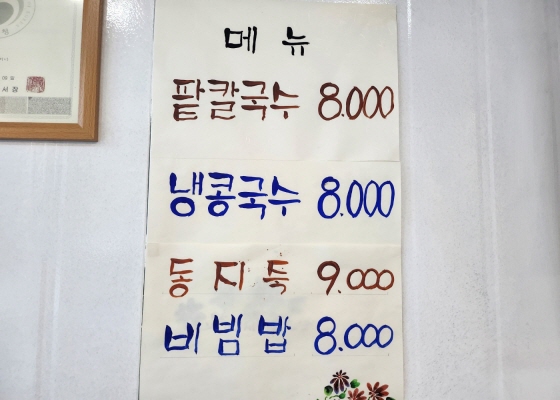 메뉴
팥칼국수 8.000
냉콩국수 8.000
동지죽 9.000
비빔밥 8.000